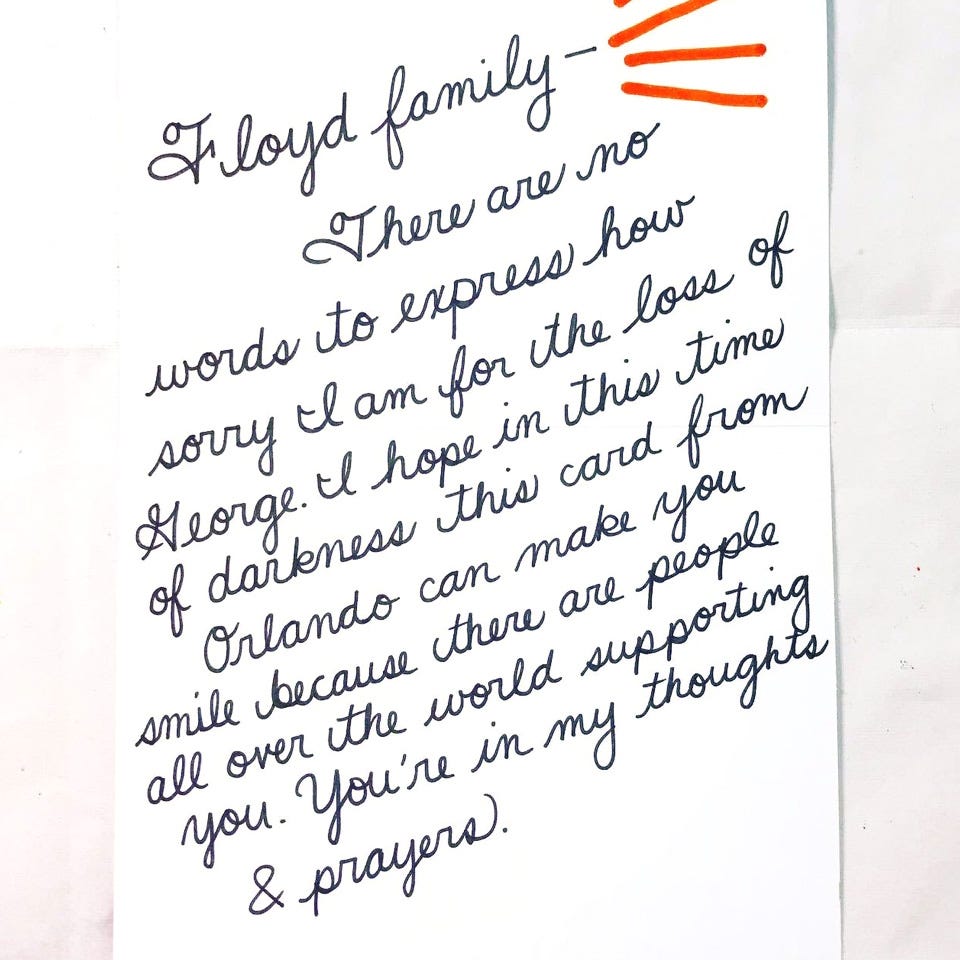 Floyd family —
There are no
words to express how
sorry I am for the loss of
George. I hope in this time
of darkness this card from
Orlando can make you
smile because there are people
all over the world supporting
you. You're in my thoughts
& prayers.